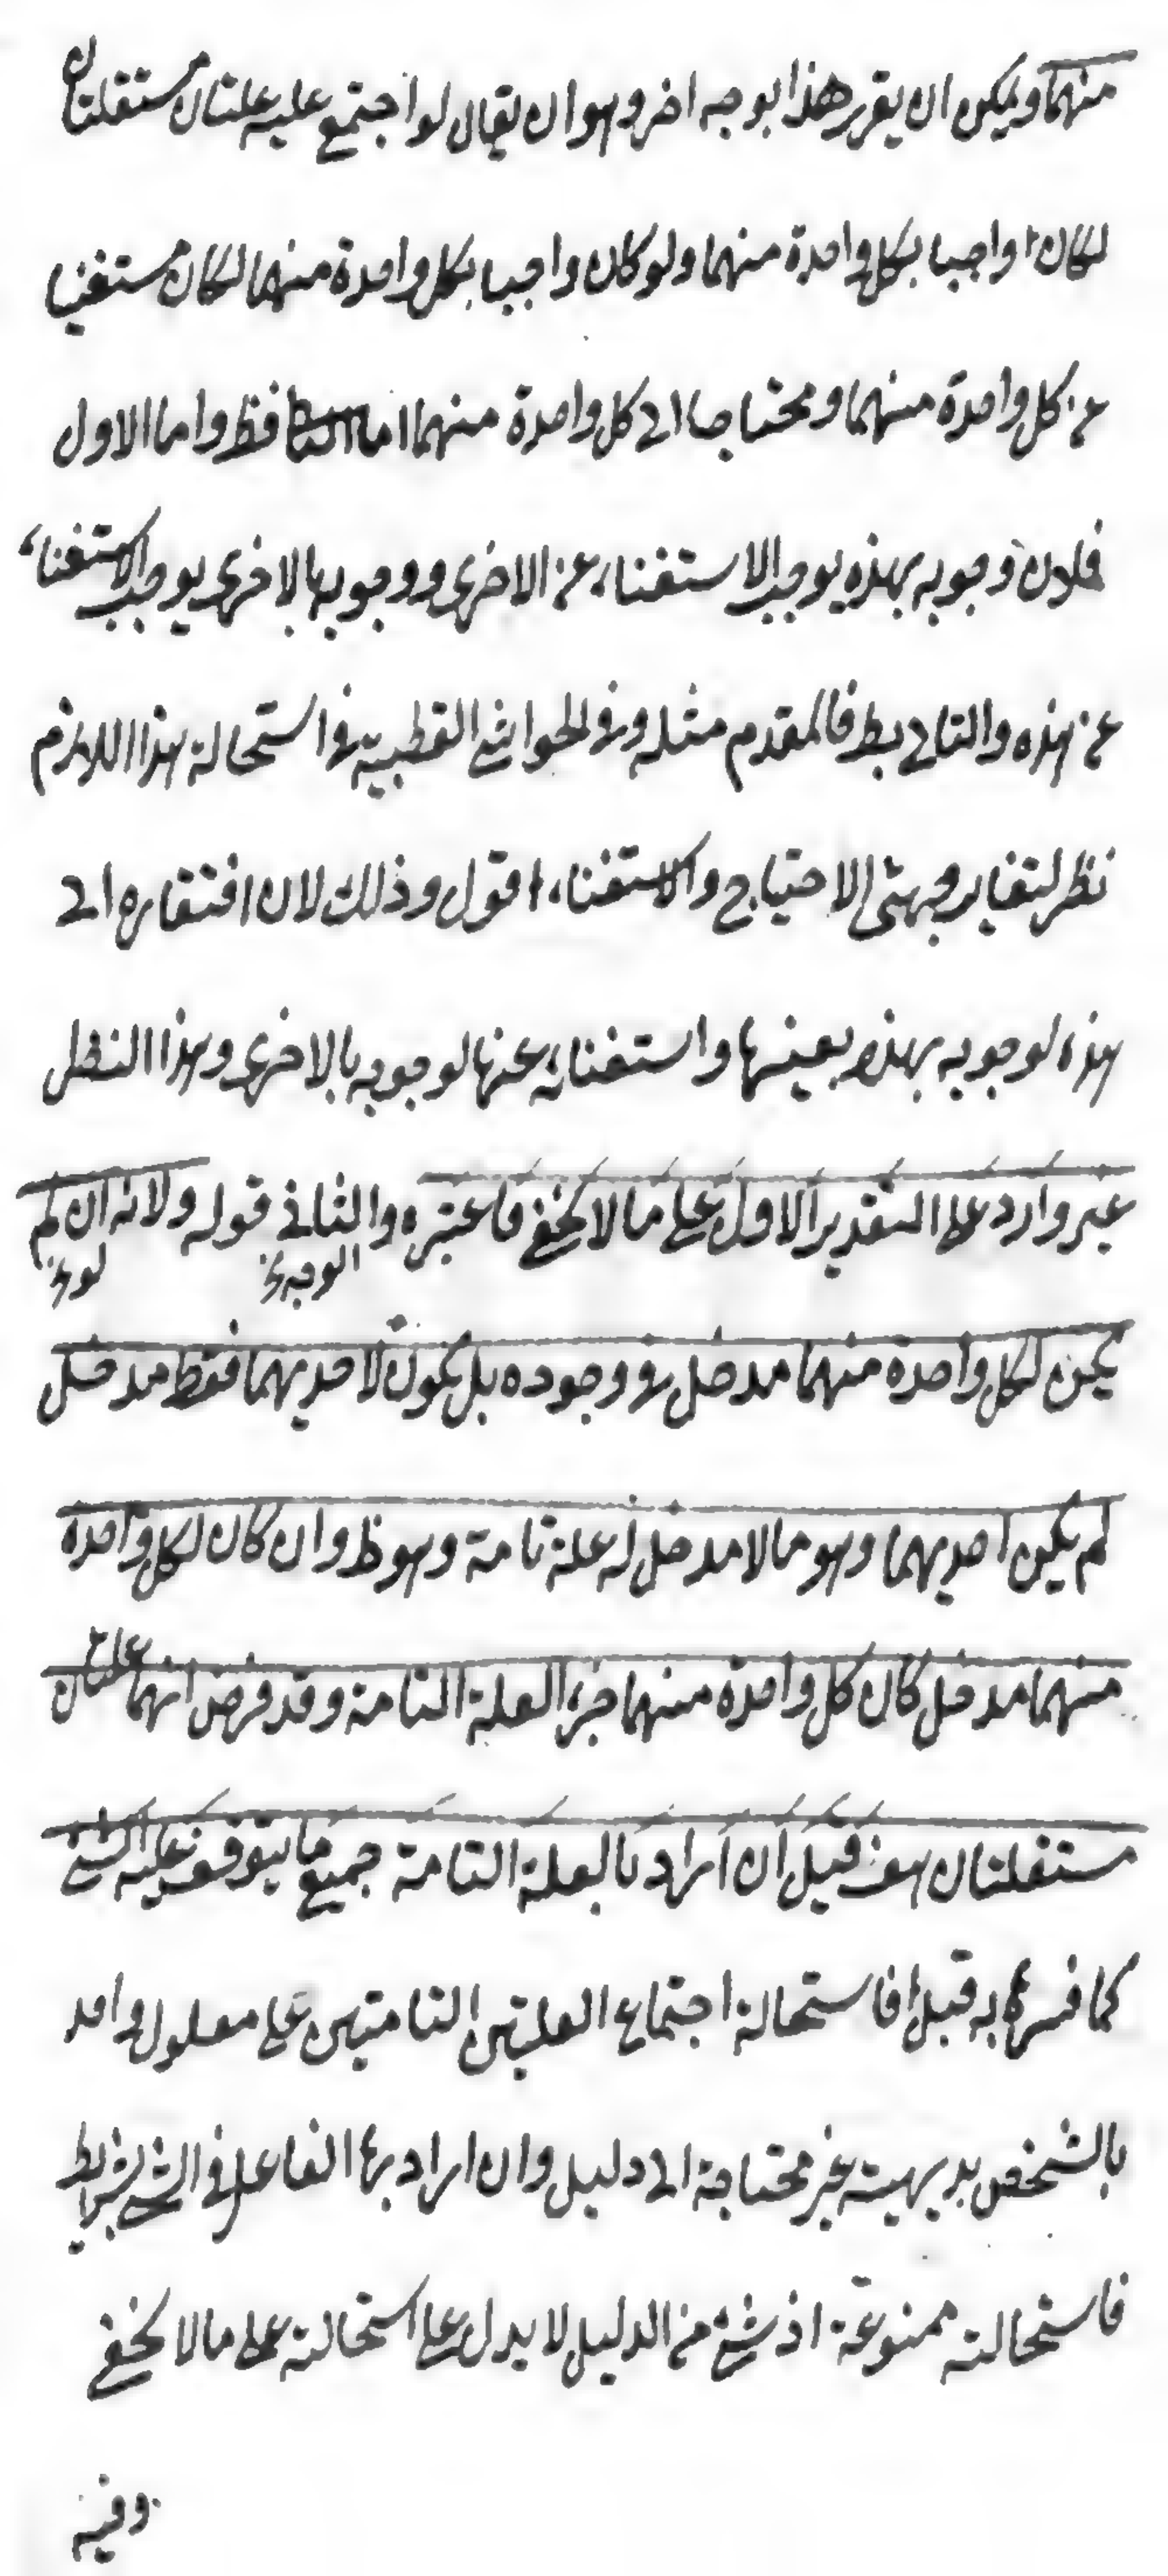 منهما ويمكن ان يقرر هذا بوجه اخر وهو ان يقال لو اجتمع عليه علتان مستقلتان
لكان واجبا بكل واحدة منهما ولو كان واجبا بكل واحدة منهما لكان مستغنيا
عن كل واحدة منهما ومحتاجا الى كل واحدة منهما اما فظ واما الاول
فلان وجوبه بهذه يوجب الاستغناء عن الاخرى ووجوبه بالاخرى يوجب الاستغناء
عن هذه والتالى بط فالمقدم مثله وفى الحواشى القطبيه فى استحالة هذا اللازم
نظر لتغاير جهتى الاحتياج والاستغناء اقول وذلك لان افتقاره الى
هذه لوجوبه بهذه بعينها واستغنائه عنها لوجوبه بالاخرى وهذا النظر
غير وارد على التقدير الاول على ما لا يخفى فاعتبره والثانى قوله ولانه ان لم
الوجه لو
يكن لكل واحدة منهما مدخل فى وجوده بل يكون لاحديهما فقط مدخل
لم يكن احديهما وهو ما لا مدخل له علة تامة وهو ظ وان كان لكل واحدة
منهما مدخل كان كل واحدة منهما جزء العلة التامة وقد فرض انهما علتان
مستقلتان هف قيل ان اراد بالعلة التامة جميع ما يتوقف عليه الشئ
كما فسرها به قبل فاستحالة اجتماع العلتين التامتين على معلول واحد
بالشخص بديهية غير محتاجة الى دليل وان اراد بها الفاعل فى الشئ بشرايط
فاستحالته ممنوعة اذ شئ من الدليل لا يدل على استحالته على ما لا يخفى
وفيه